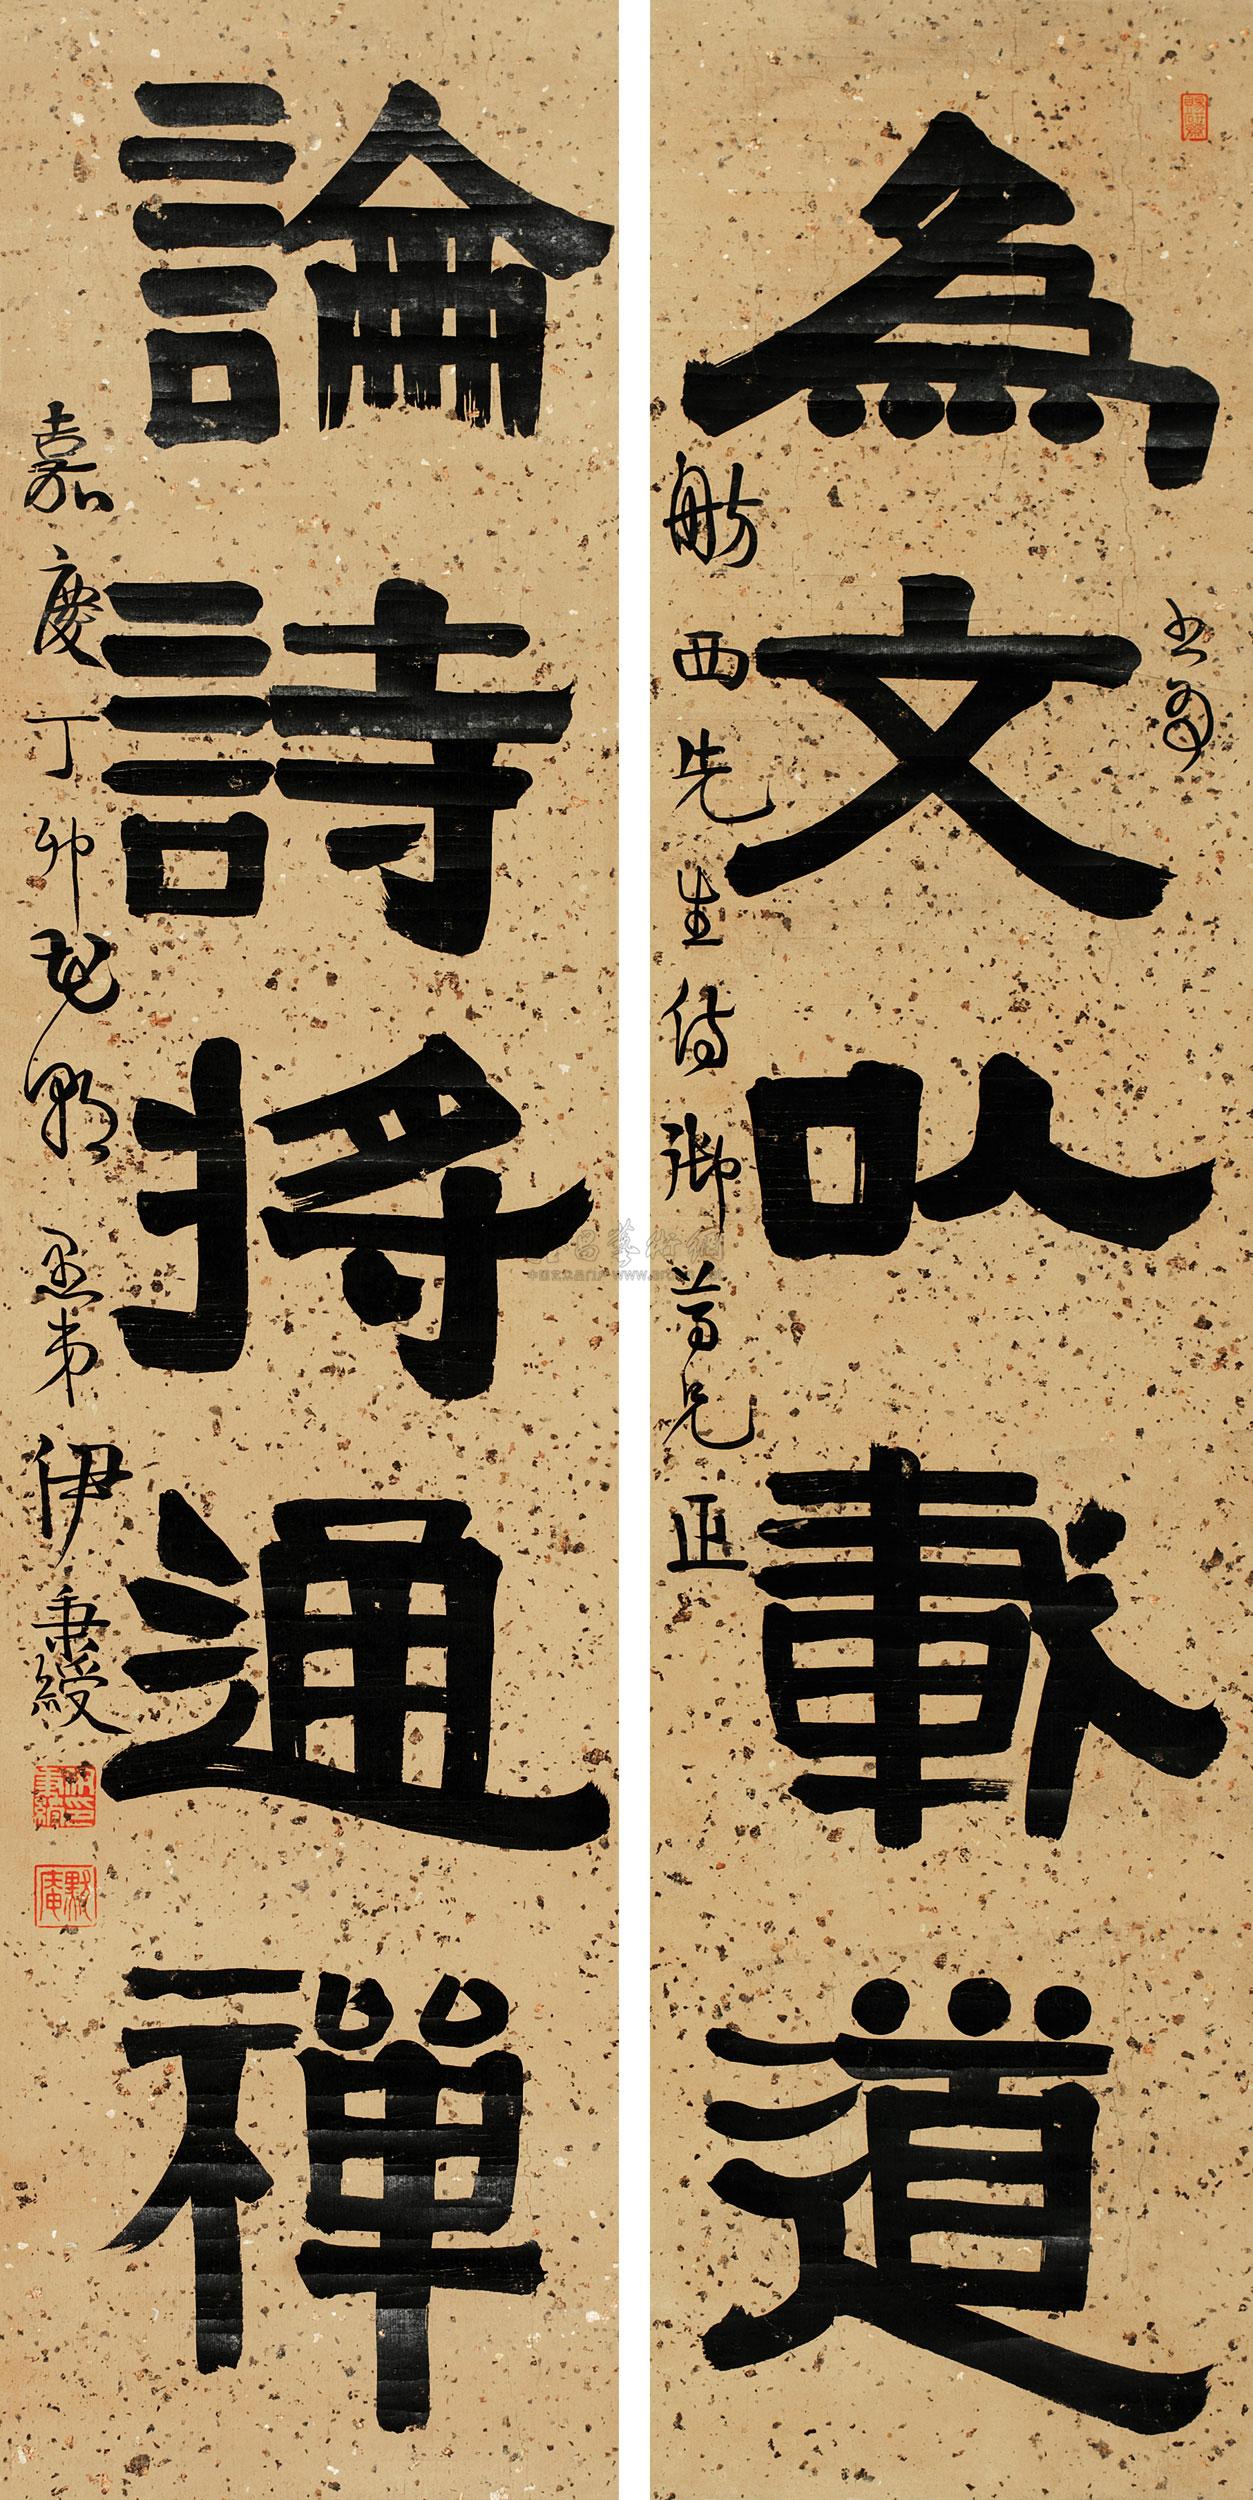 為文以載道
舫西先生侍御尊兄正
論詩將通禪
嘉慶丁卯 愚弟伊秉綬
秉綬
默庵